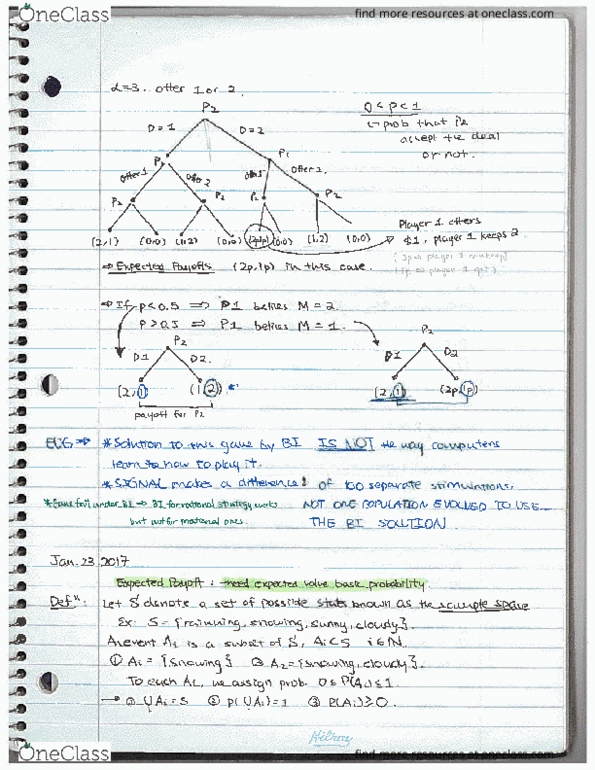 OneClass
find more resources at oneclass.com
L=3. offer 1 or 2.
P2
0 < p < 1
prob that P2
accept the deal
or not.
D=1
D=2
P1
P1
offer 1
offer 2
offer 2.
P2
P2
P2
P2
(2,1) (0,0) (1,2) (0,0) (2p,1p) (0,0) (1,2) (0,0)
Player 1 offers
$1, player 1 keeps 2
⇒ Expected Payoffs (2p,1p) in this case.
⇒ If p<0.5 ⇒ P1 M = 2.
p>0.5 ⇒ P1 M = 1.
P2
P2
D1
D2.
D1
D2
(2,1)
(1,2)
(2,1)
(2p,1p)
payoff for P2
* Solution to this game by BI IS NOT the way computers
learn to how to play it.
* SIGNAL makes a difference! of 100 separate stimulations,
NOT ONE POPULATION EVOLVED TO USE
BI for rational strategy works
but not for
THE BI SOLUTION
Jan. 23, 2017
Expected Payoff: need expected value basic probability.
Defⁿ: Let S denote a set of possible stats known as the sample space
Ex: S = {rainning, snowing, sunny, cloudy}.
An event Ai is a subset of S, Ai⊂S i∈N
① Ai = {snowing} ② A2={snowing, cloudy}.
To each Ai, we assign prob. 0≤P(Ai)≤1.
→ ① UAi=S ② P(UAi)=1 ③ P(Ai)≥0.
OneClass
find more resources at oneclass.com